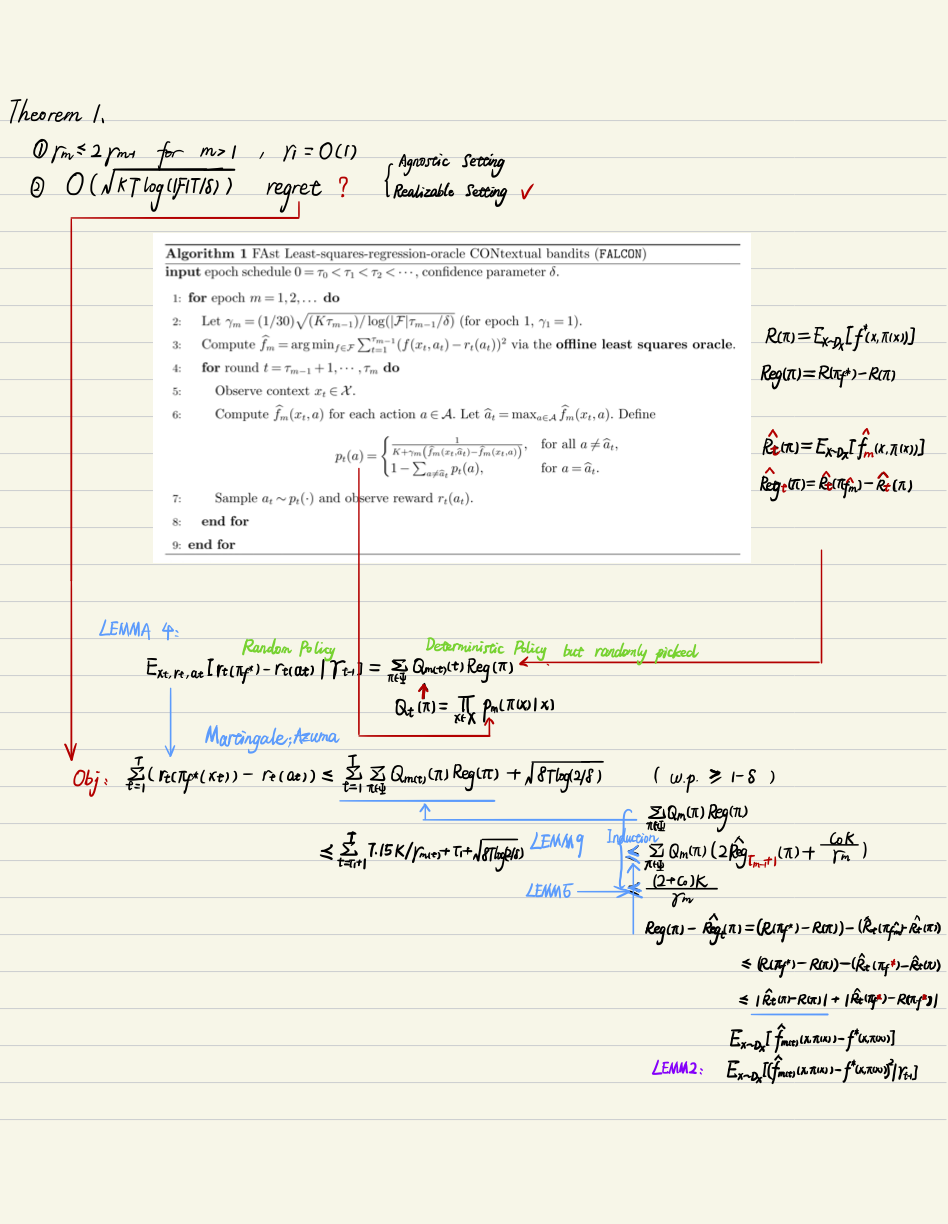 Theorem 1.
① τm ≤ 2τm-1 for m>1 , τ1 = O(1)
② O(√KT log(|F|T/δ)) regret ?
Agnostic Setting
Realizable Setting ✓
Algorithm 1 FAst Least-squares-regression-oracle CONtextual bandits (FALCON)
input epoch schedule 0 = τ0 < τ1 < τ2 < ···, confidence parameter δ.
1: for epoch m = 1, 2, … do
2: Let γm = (1/30)√(Kτm−1)/log(|F|τm−1/δ) (for epoch 1, γ1 = 1).
3: Compute f̂m = arg min f∈F ∑t=1^τm−1 (f(xt, at) − rt(at))² via the offline least squares oracle.
4: for round t = τm−1 + 1, ···, τm do
5: Observe context xt ∈ X.
6: Compute f̂m(xt, a) for each action a ∈ A. Let ât = maxa∈A f̂m(xt, a). Define
pt(a) = { 1/(K+γm(f̂m(xt,ât)−f̂m(xt,a))), for all a ≠ ât,
1 − ∑a≠ât pt(a), for a = ât.
7: Sample at ∼ pt(·) and observe reward rt(at).
8: end for
9: end for
R(π) = Ex~Dx[f*(x,π(x))]
Reg(π) = R(πf*) − R(π)
R̂t(π) = Ex~Dx[f̂m(x,π(x))]
R̂egt(π) = R̂t(πf̂m) − R̂t(π)
LEMMA 4:
Random Policy
Deterministic Policy but randomly picked
Ext,rt,at[rt(πf*) − rt(at) | Υt-1] = ∑π∈Ψ Qm(t)(t) Reg(π)
Qt(π) = ∏x∈X pm(π(x)|x)
Martingale; Azuma
Obj: ∑t=1^T (rt(πf*(xt)) − rt(at)) ≤ ∑t=1^T ∑π∈Ψ Qm(t)(π) Reg(π) + √8T log(2/δ) ( w.p. ≥ 1−δ )
∑π∈Ψ Qm(π) Reg(π)
≤ ∑t=τ1+1^T 7.15K/γm(t) + τ1 + √8T log(2/δ)
LEMM9 Induction
≤ ∑π∈Ψ Qm(π)(2R̂egτm-1+1(π) + C0K/γm)
LEMM5
≤ (2+C0)K/γm
Reg(π) − R̂egt(π) = (R(πf*) − R(π)) − (R̂t(πf̂m) − R̂t(π))
≤ (R(πf*) − R(π)) − (R̂t(πf*) − R̂t(π))
≤ |R̂t(π) − R(π)| + |R̂t(πf*) − R(πf*)|
Ex~Dx[f̂m(t)(x,π(x)) − f*(x,π(x))]
LEMM2: Ex~Dx[(f̂m(t)(x,π(x)) − f*(x,π(x)))² | Υt-1]